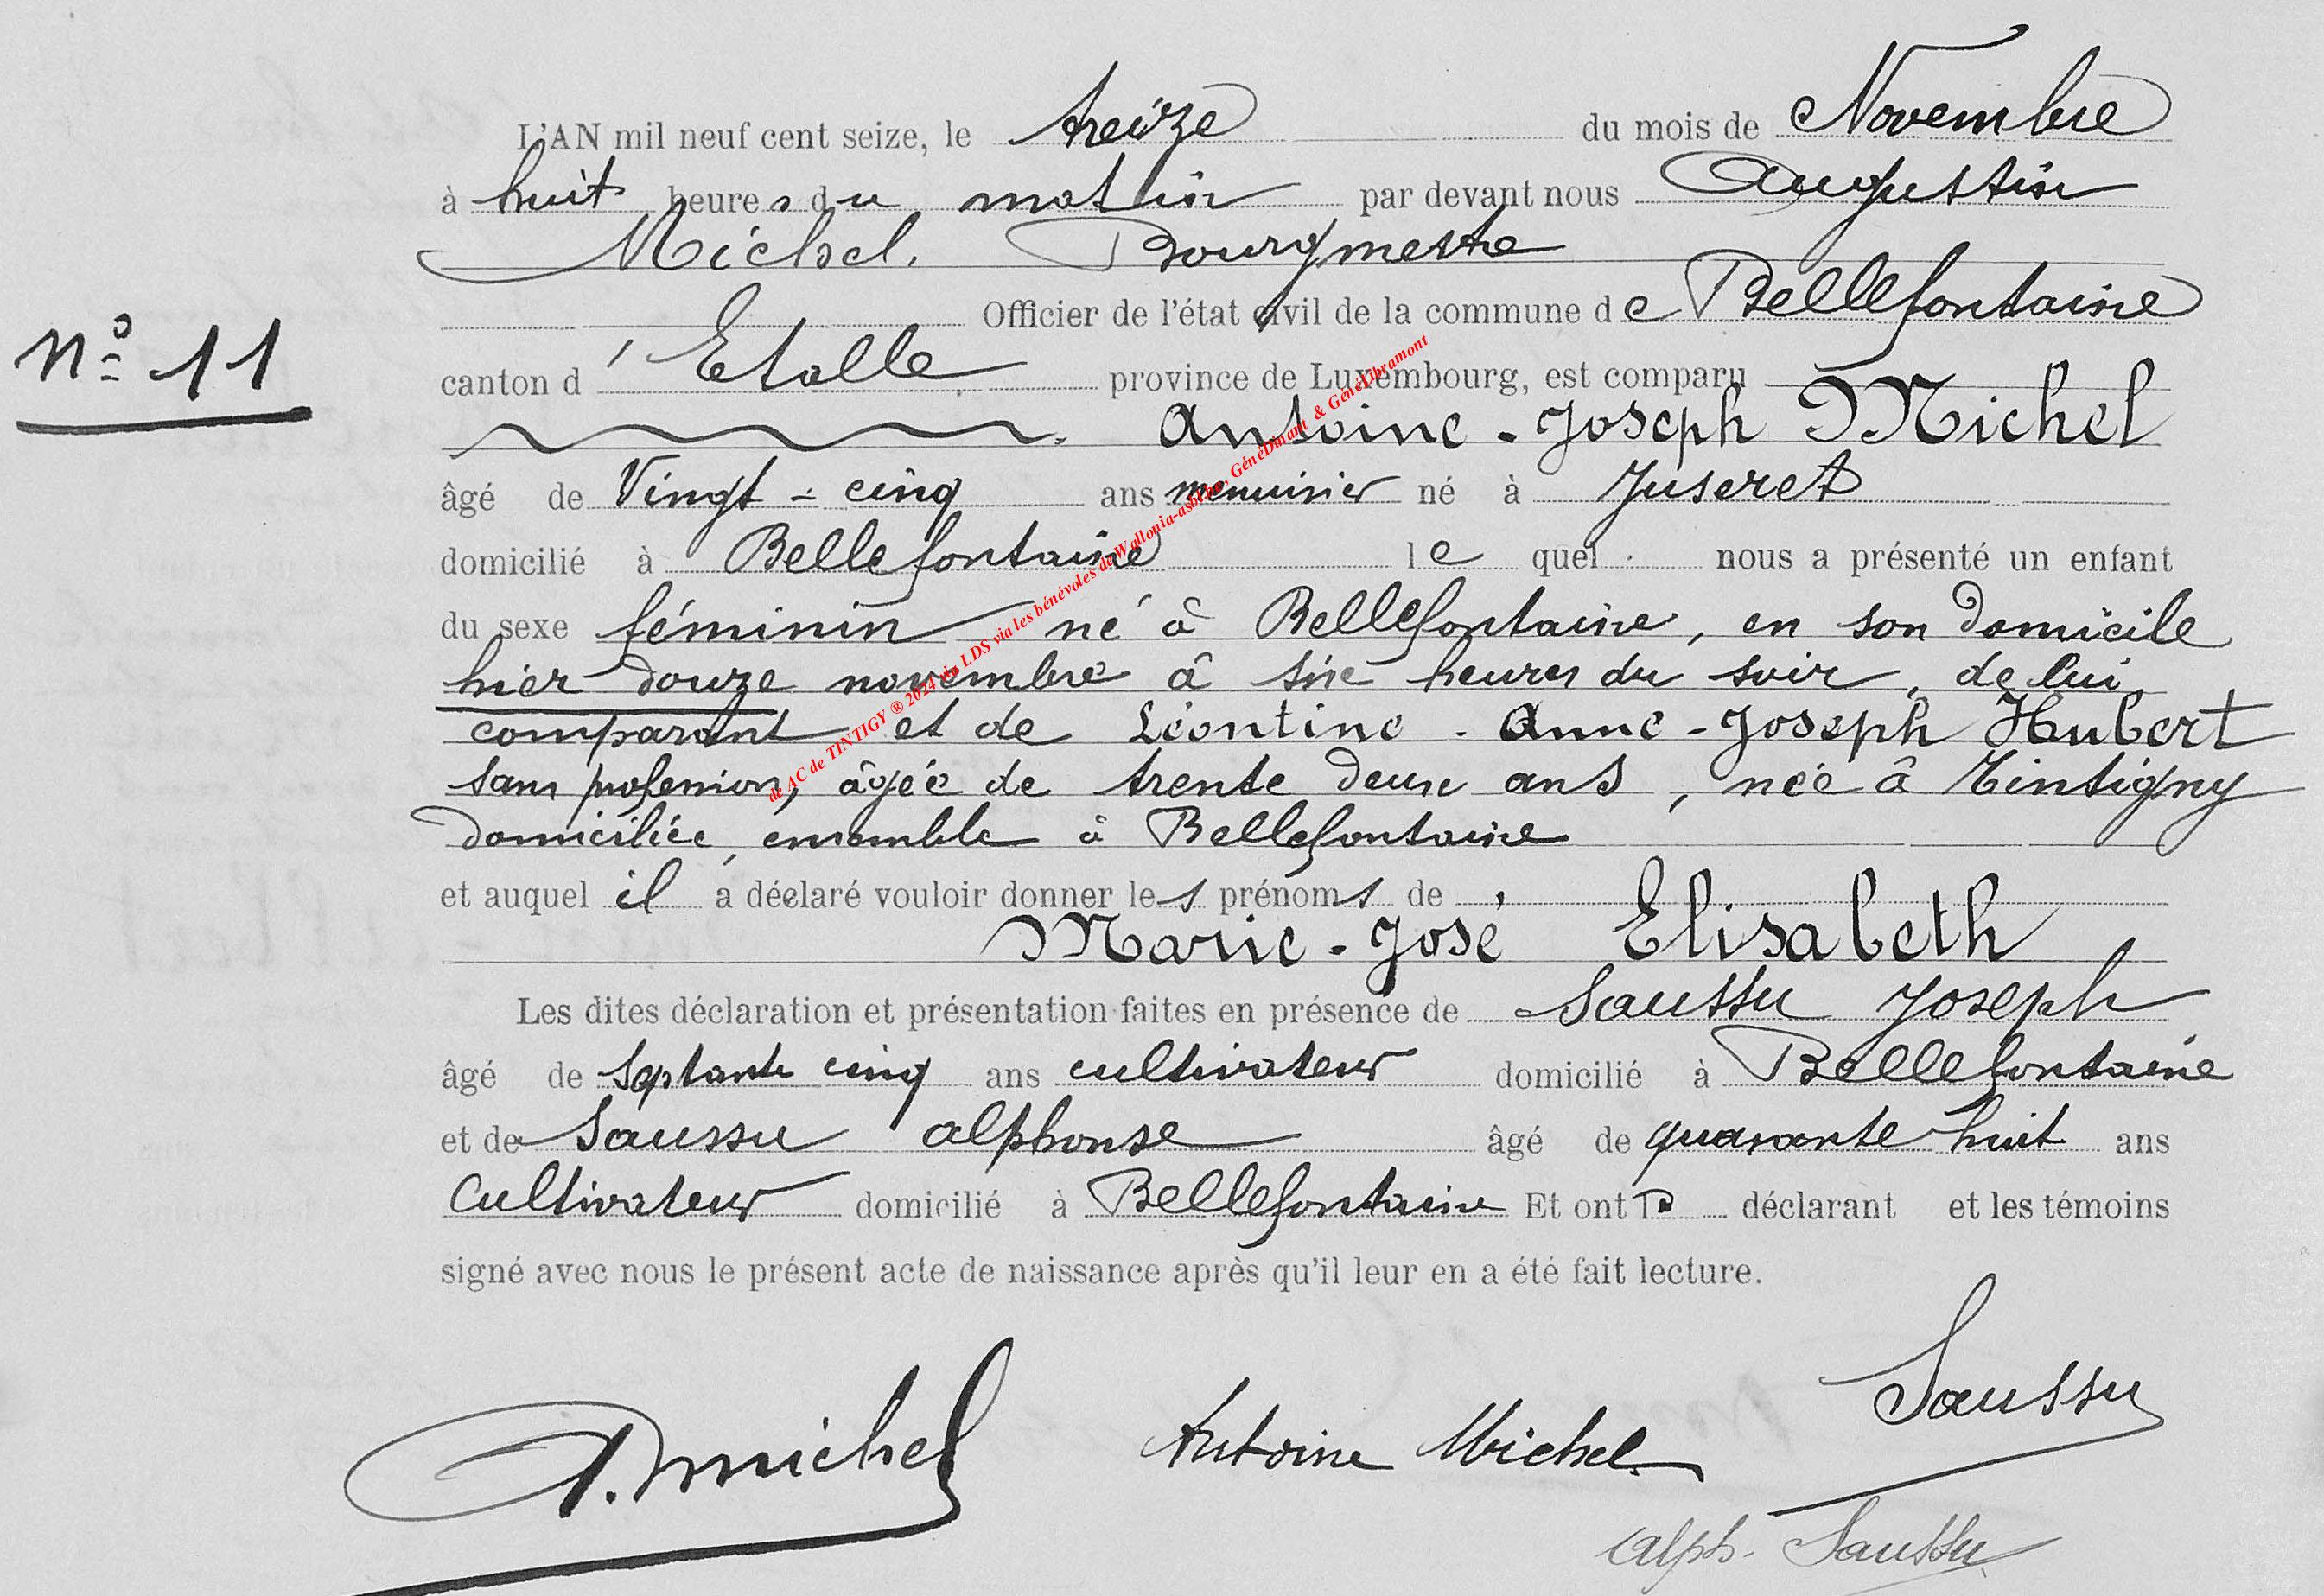 L'AN mil neuf cent seize, le treize du mois de Novembre
à huit heures du matin par devant nous Augustin
Michel, Bourgmestre
Officier de l'état civil de la commune de Bellefontaine
N° 11
canton d'Etalle province de Luxembourg, est comparu
Antoine-Joseph Michel
âgé de Vingt-cinq ans menuisier né à Juseret
domicilié à Bellefontaine lequel nous a présenté un enfant
du sexe féminin né à Bellefontaine, en son domicile
hier douze novembre à six heures du soir, de lui
comparant et de Léontine-Anne-Joseph Hubert
sans profession, âgée de trente deux ans, née à Tintigny
domiciliée, ensemble à Bellefontaine
et auquel il a déclaré vouloir donner les prénoms de
Marie-José Elisabeth
Les dites déclaration et présentation faites en présence de Saussu Joseph
âgé de septante cinq ans cultivateur domicilié à Bellefontaine
et de Saussu Alphonse âgé de quarante huit ans
Cultivateur domicilié à Bellefontaine Et ont déclarant et les témoins
signé avec nous le présent acte de naissance après qu'il leur en a été fait lecture.
Saussu
A. Michel
Antoine Michel
Alph. Saussu
de AC de TINTIGY ® 2024 via LDS via les bénévoles de Wallonia-asbl.be, GénéDinant & GénéLibramont